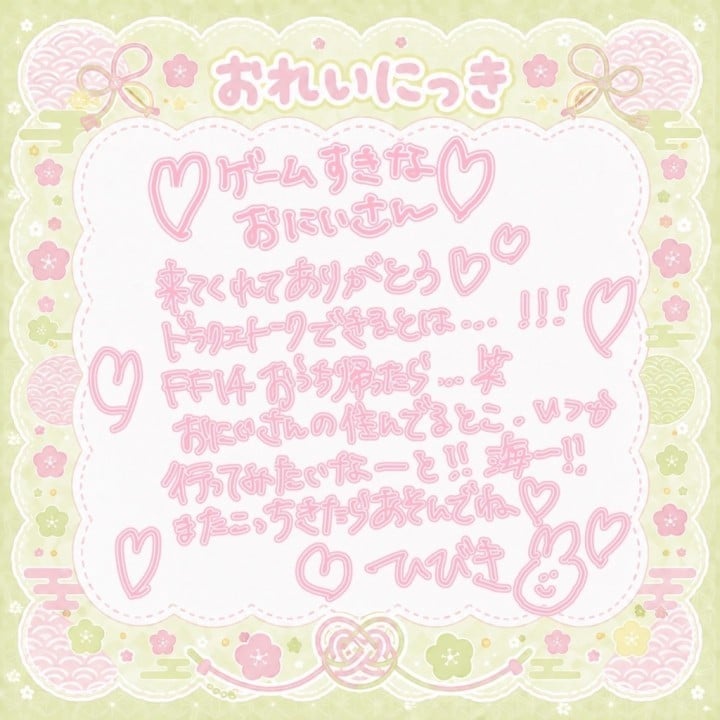 おれいにっき
ゲームすきな
おにいさん
来てくれてありがとう
ドラクエトークできるとは... !!!
FF14 おうち帰ったら...笑
おにいさんの住んでるとこ、いつか
行ってみたいなーと!! 海ー!!
またこっちきたらあそんでね
ひびき